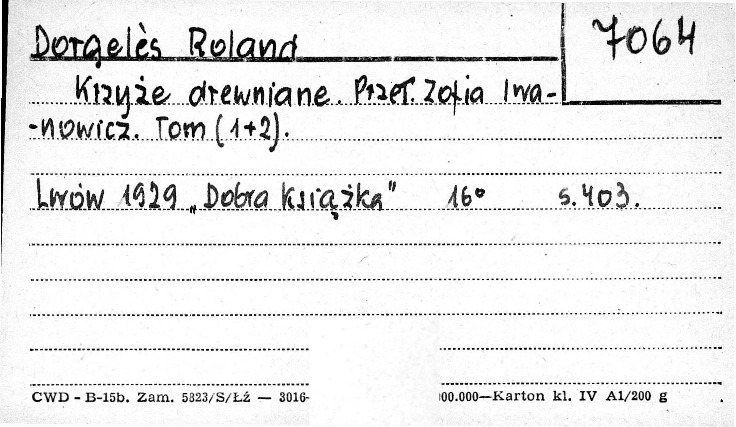 Dorgelès Roland
7064
Krzyże drewniane. Przeł. Zofia Iwa-
-nowicz. Tom (1+2).
Lwów 1929 „Dobra Książka" 16° s. 403.
CWD - B-15b. Zam. 5823/S/Łź — 3016- 00.000—Karton kl. IV A1/200 g